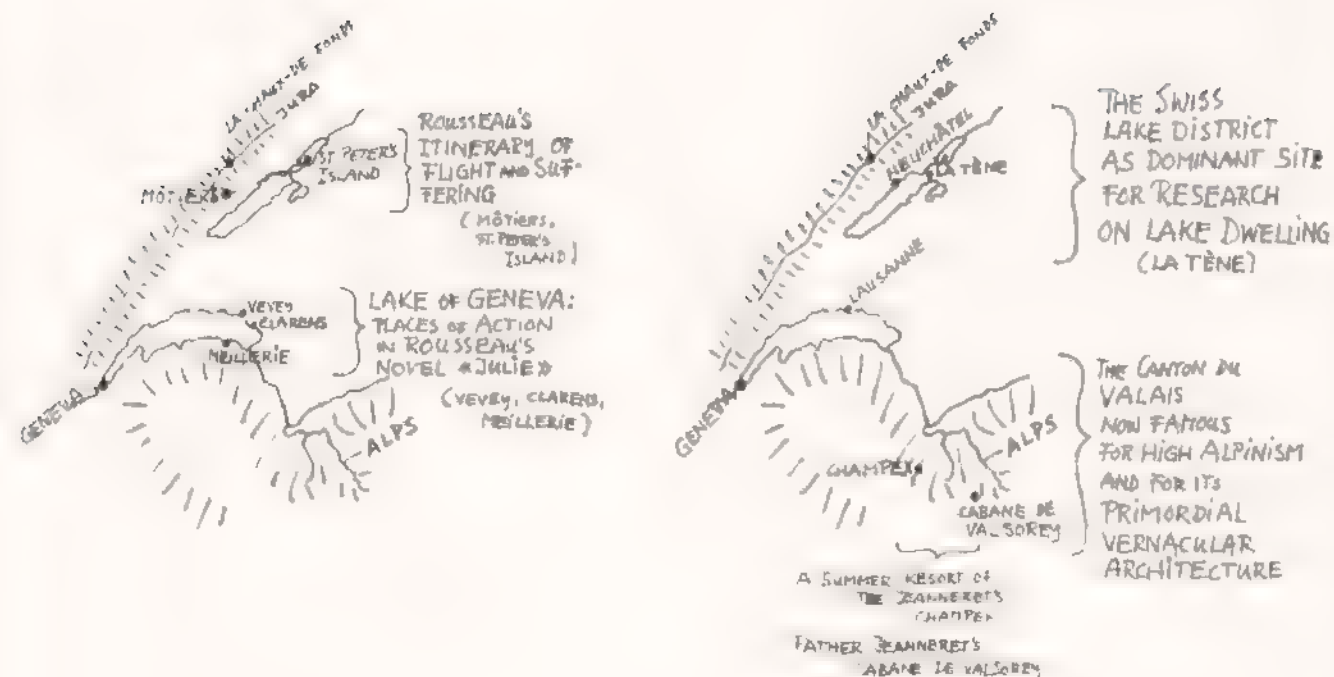 LA CHAUX-DE FONDS
JURA
MÔTIERS
ST PETER'S
ISLAND
ROUSSEAU'S
ITINERARY OF
FLIGHT AND SUF-
FERING
(MÔTIERS,
ST. PETER'S
ISLAND)
VEVEY
CLARENS
MEILLERIE
GENEVA
ALPS
LAKE OF GENEVA:
PLACES OF ACTION
IN ROUSSEAU'S
NOVEL «JULIE»
(VEVEY, CLARENS,
MEILLERIE)
LA CHAUX-DE FONDS
JURA
NEUCHÂTEL
LA TÈNE
THE SWISS
LAKE DISTRICT
AS DOMINANT SITE
FOR RESEARCH
ON LAKE DWELLING
(LA TÈNE)
LAUSANNE
GENEVA
ALPS
CHAMPEX
CABANE DE
VALSOREY
THE CANTON DU
VALAIS
NOW FAMOUS
FOR HIGH ALPINISM
AND FOR ITS
PRIMORDIAL
VERNACULAR
ARCHITECTURE
A SUMMER RESORT OF
THE JEANNERETS
CHAMPEX
FATHER JEANNERETS
CABANE DE VALSOREY